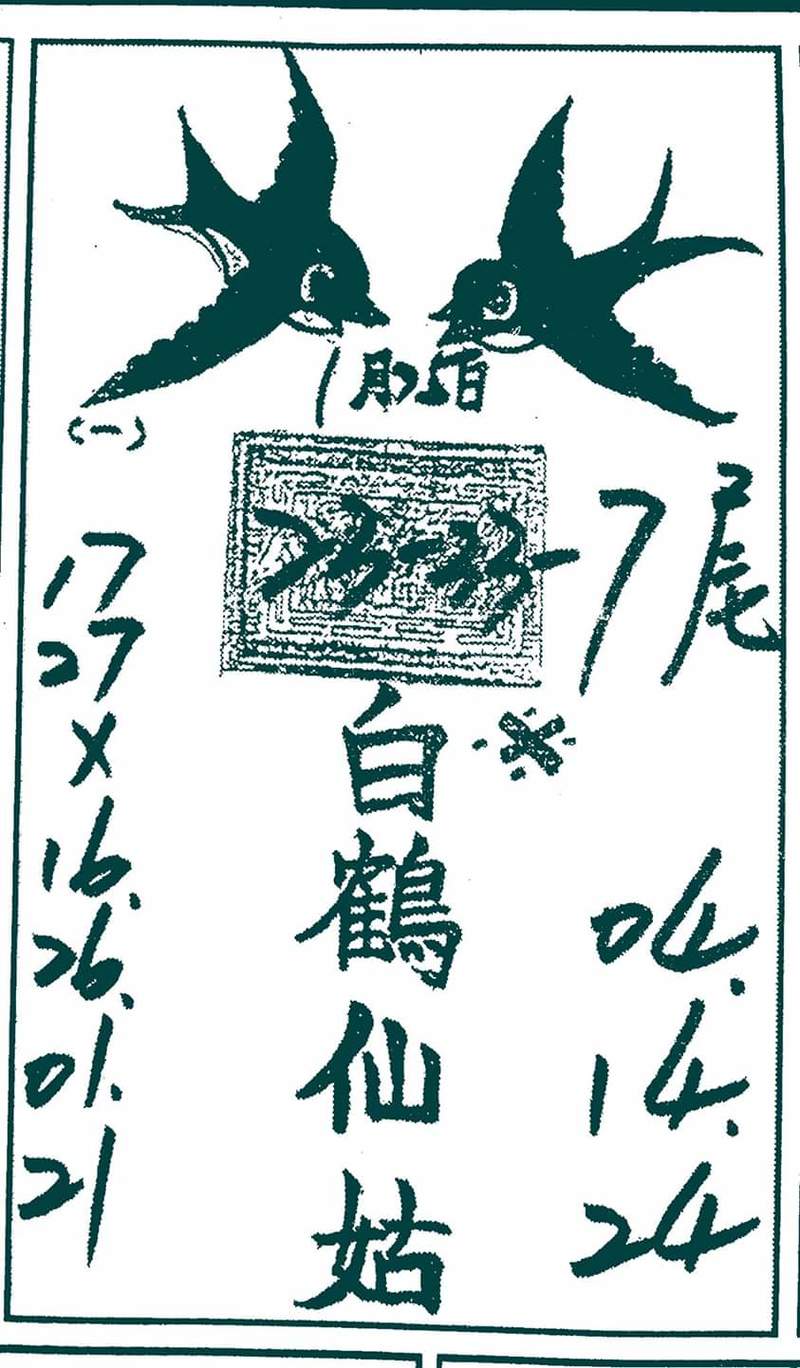 (一)
23-33-7尾
17
27
X
16.
26.
01.
21
白
鶴
仙
姑
04.
14.
24